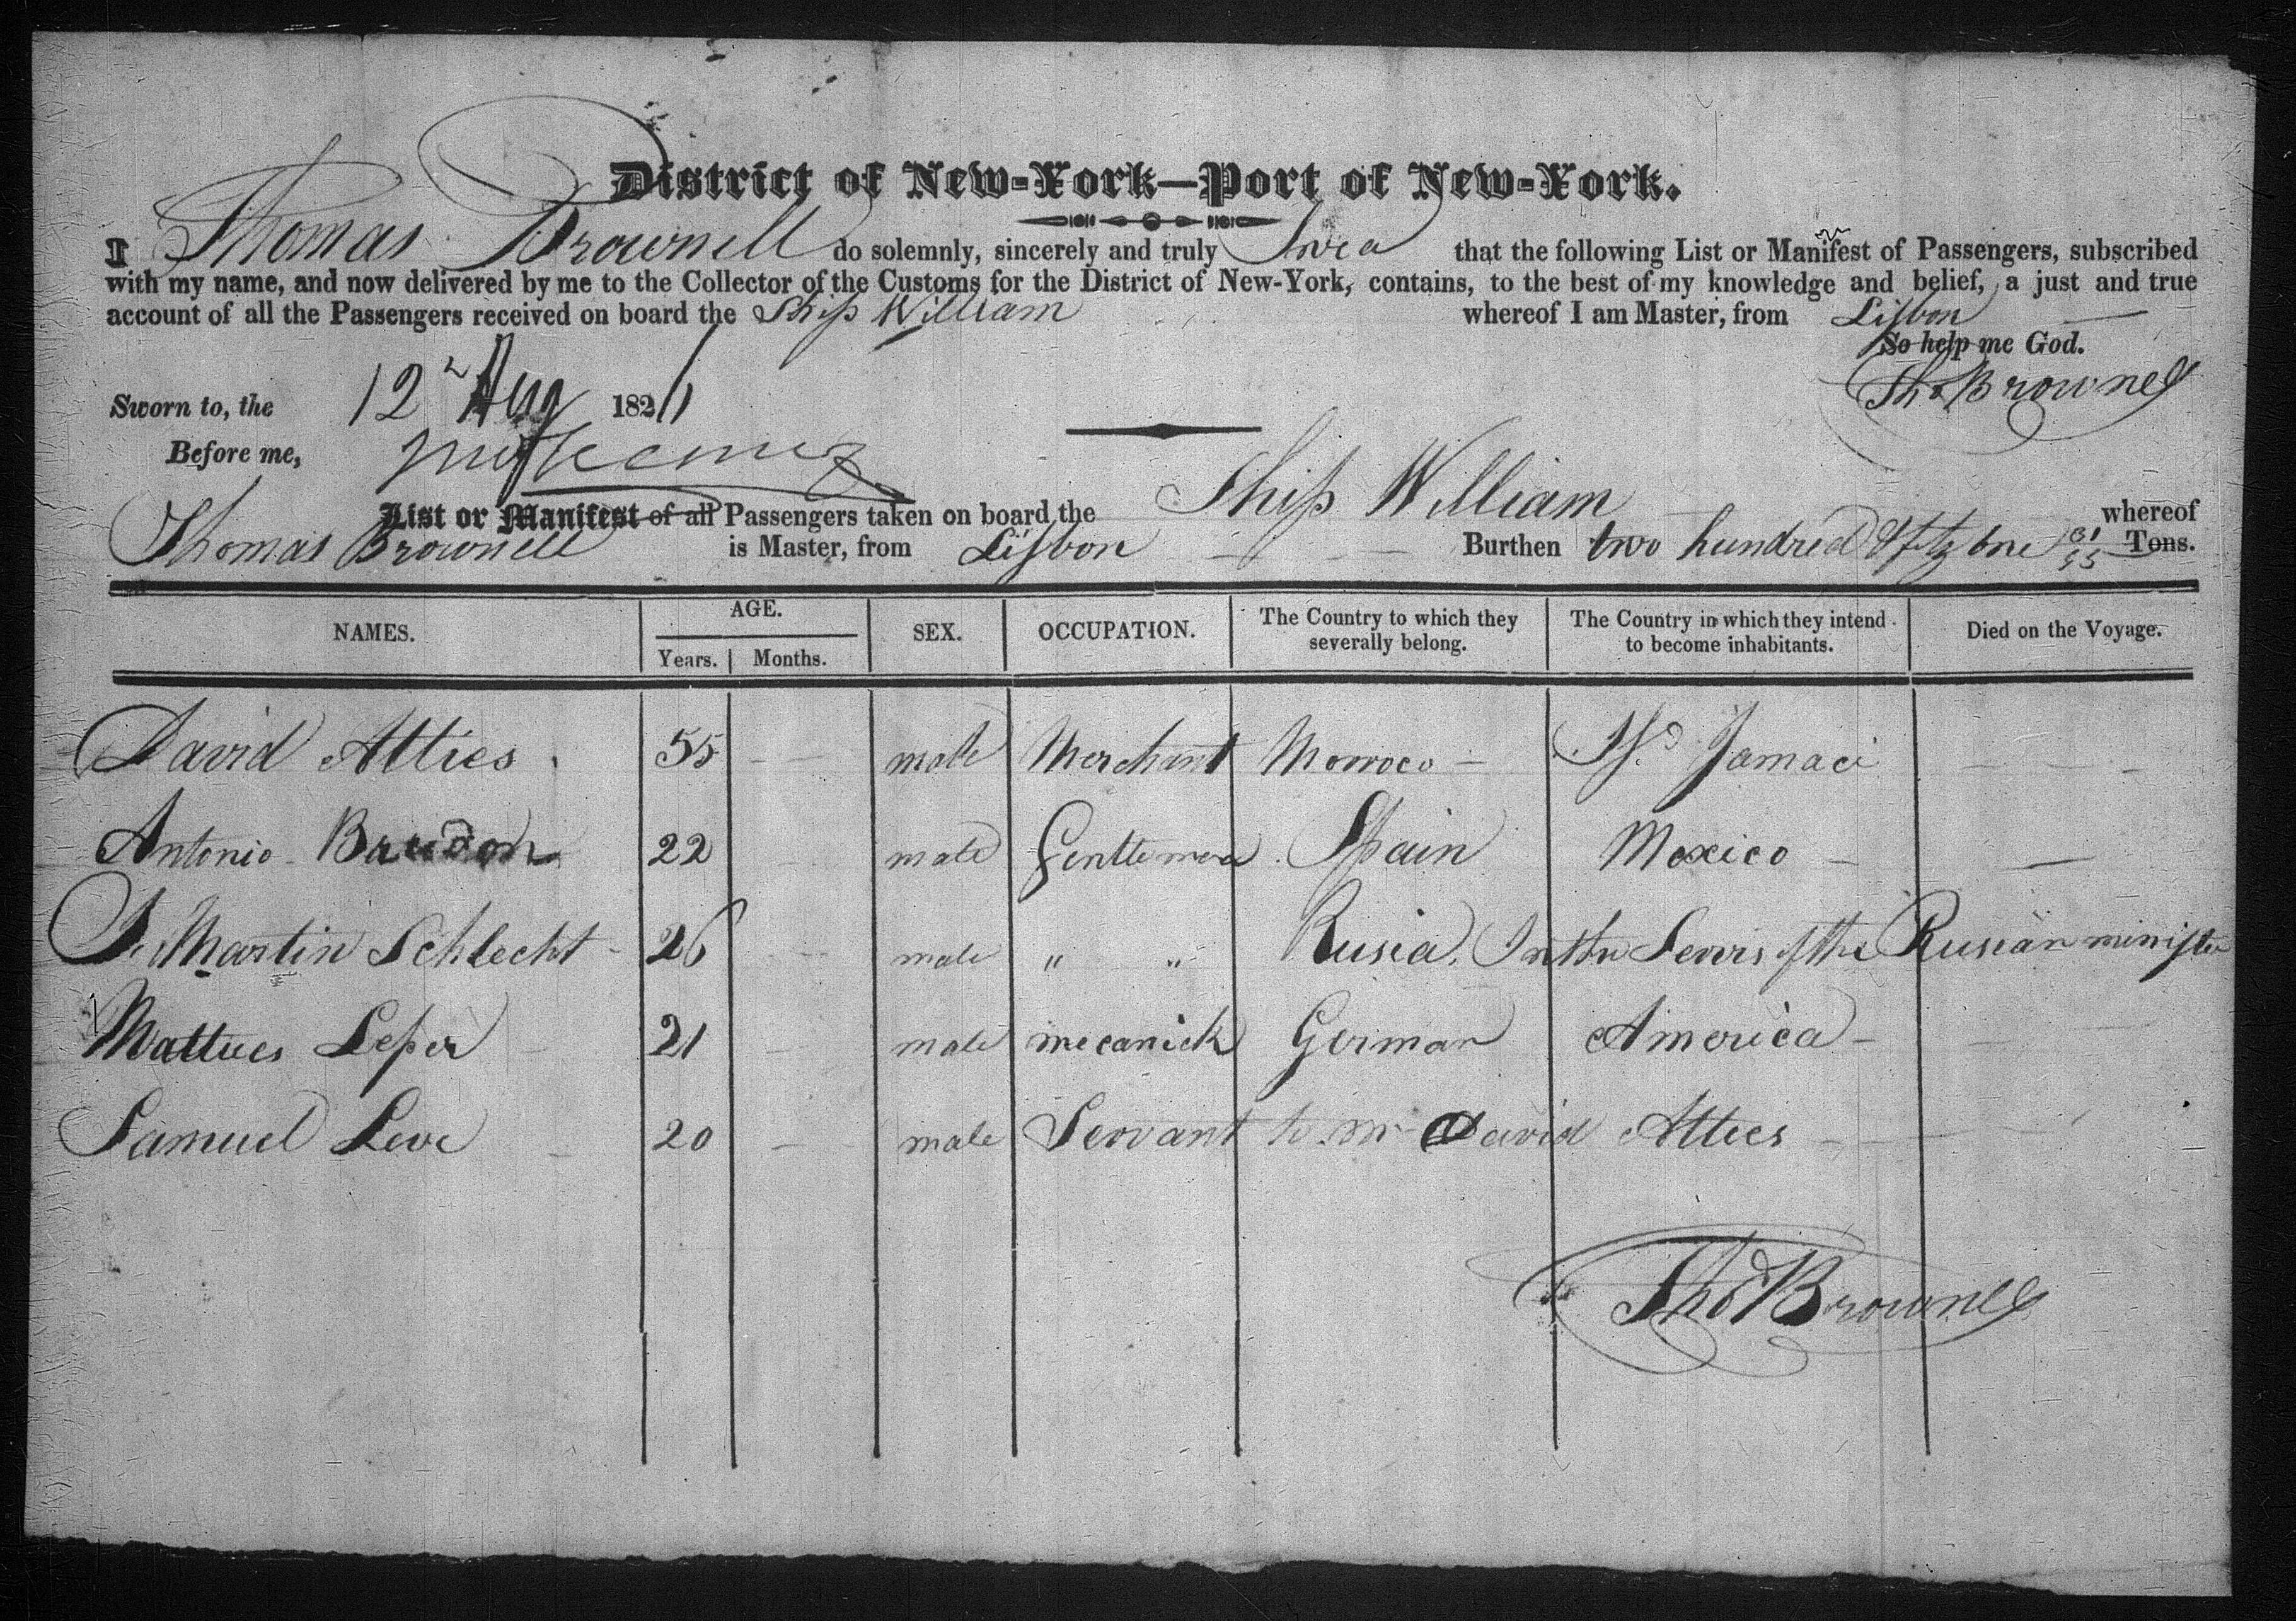 District of New-York—Port of New-York.
I Thomas Brownell do solemnly, sincerely and truly Swea that the following List or Manifest of Passengers, subscribed
with my name, and now delivered by me to the Collector of the Customs for the District of New-York, contains, to the best of my knowledge and belief, a just and true
account of all the Passengers received on board the Ship William whereof I am Master, from Lisbon
So help me God.
Tho Brownell
Sworn to, the 12 Aug 1821
Before me,
List or Manifest of all Passengers taken on board the Ship William whereof
Thomas Brownell is Master, from Lisbon Burthen two hundred & fifty one 31/95 Tons.
NAMES. AGE. Years. Months. SEX. OCCUPATION. The Country to which they severally belong. The Country in which they intend to become inhabitants. Died on the Voyage.
David Atties 55 male Merchant Morroco Jamaci
Antonio 22 male Gentlemen Spain Mexico
Martin Schlecht 26 male " " Rusia In the Servis of the Rusian minister
Leper 21 male mecanick German America
Samuel Leve 20 male Servant to Mr David Atties
Tho Brownell